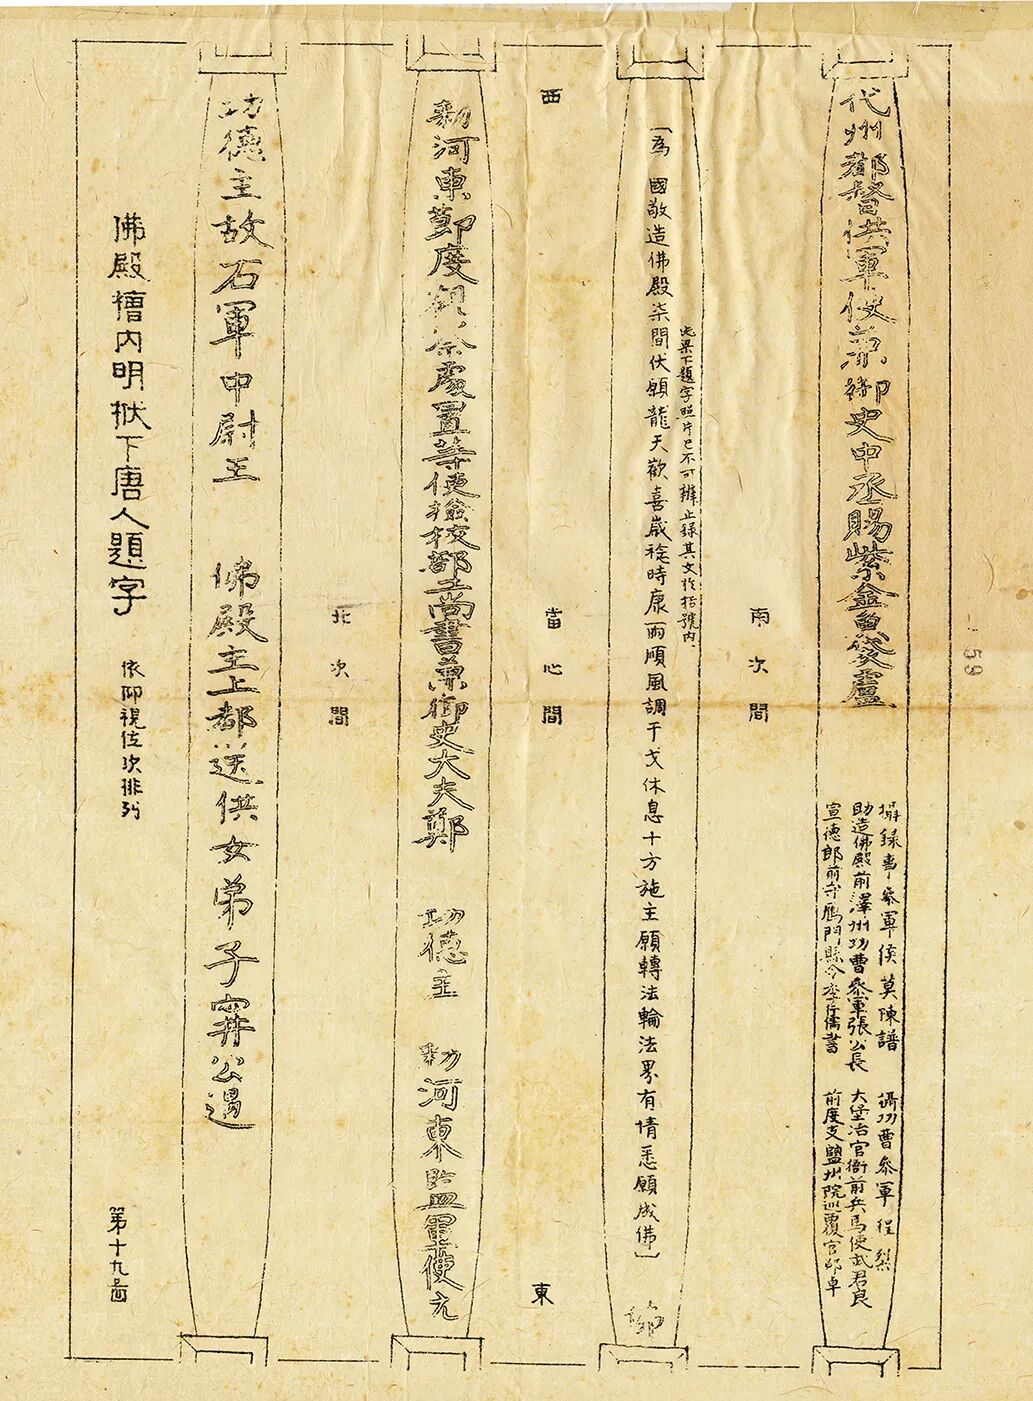 代州都督供軍使兼御史中丞賜紫金魚袋盧
攝錄事參軍侯莫陳譜
助造佛殿前澤州功曹參軍張公長
宣德郎前守鴈門縣令李行儒書
攝功曹參軍程
大堡冶官衙前兵馬使武君良
前度支鹽州院巡覆官邵卓
59
南次間
此梁下題字照片已不可辨止錄其文於括號內
〔為 國敬造佛殿柒間伏願龍天歡喜歲稔時康雨順風調干戈休息十方施主願轉法輪法界有情悉願成佛〕
西
當心間
東
勅河東節度觀察處置等使檢校部工尚書兼御史大夫鄭 功德主 勅河東監軍使元
北次間
功德主故右軍中尉王 佛殿主上都送供女弟子甯公遇
佛殿槽內明栿下唐人題字
依仰視位次排列
第十九圖